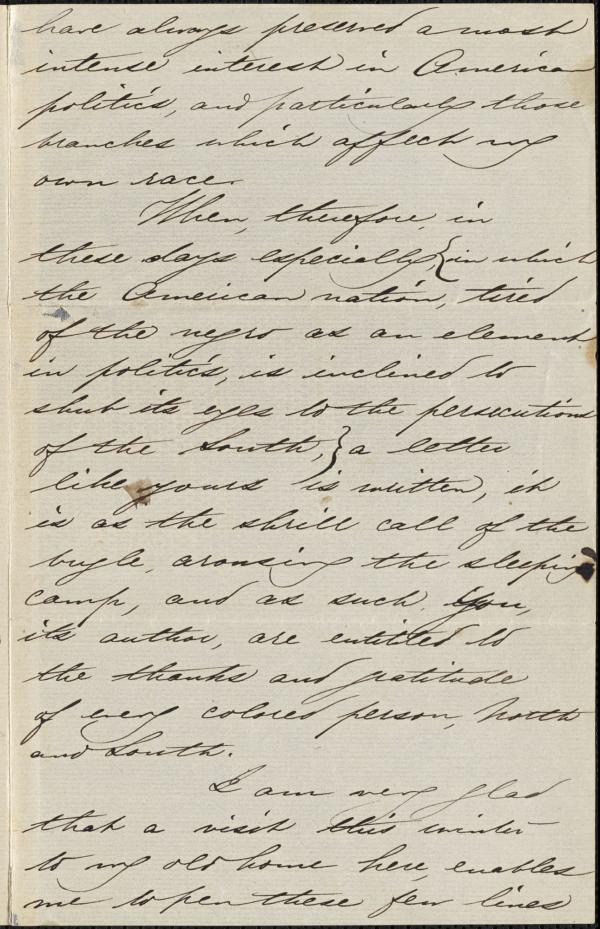 have always preserved a most
intense interest in American
politics, and particularly those
branches which affect my
own race.
When, therefore, in
these days especially, {in which
the American nation, tired
of the negro as an element
in politics, is inclined to
shut its eyes to the persecutions
of the South,} a letter
like yours is written, it
is as the shrill call of the
bugle, arousing the sleeping
camp, and as such, you,
its author, are entitled to
the thanks and gratitude
of every colored person, North
and South.
I am very glad
that a visit this winter
to my old home here, enables
me to pen these few lines